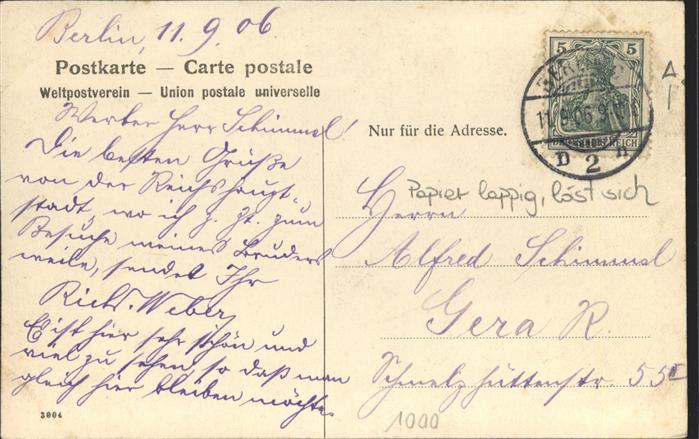 Berlin, 11.9.06.
Postkarte — Carte postale
Weltpostverein — Union postale universelle
Werter Herr Schimmel!
Die besten Grüße
von der Reichshaupt-
stadt, wo ich z. Zt. zum
Besuche meines Bruders
weile, sendet Ihr
Richs. Weber,
Es ist hier sehr schön und
viel zu sehen, so daß man
gleich hier bleiben möchte.
3004
5 5
DEUTSCHES REICH
BERLIN
11.9.06.9
2
Nur für die Adresse.
Papier lappig, löst sich
Herrn
Alfred Schimmel
Gera R.
Schmelzhüttenstr 55
1000